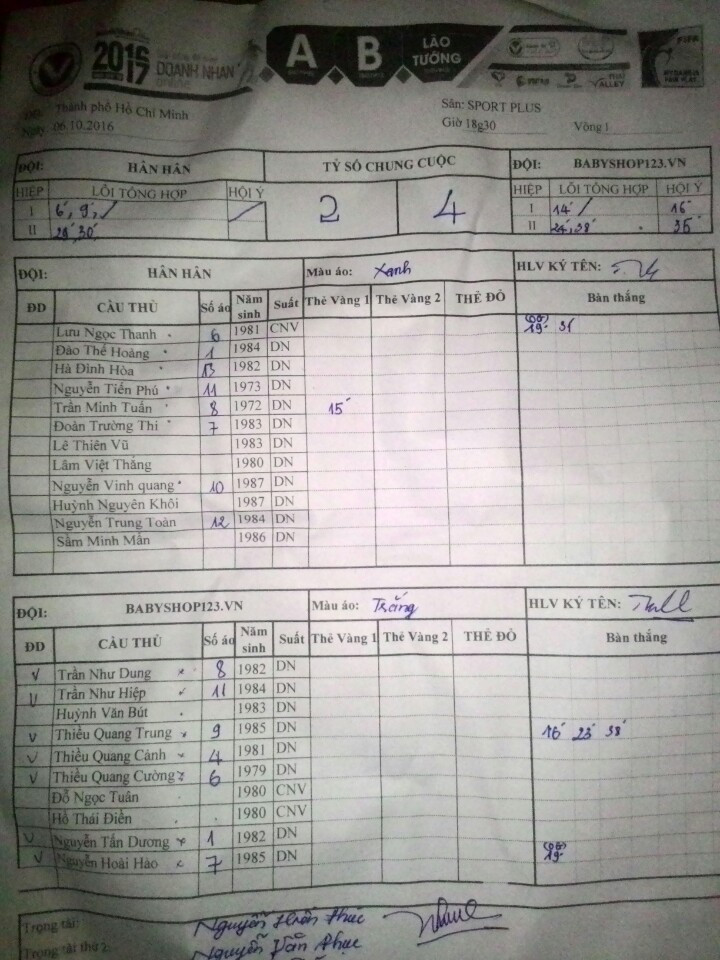 2016
17
DOANH NHÂN
online
A B LÃO TƯỚNG
VALLEY
FIFA
Thành phố Hồ Chí Minh
Sân: SPORT PLUS
Ngày 06.10.2016
Giờ 18g30 Vòng 1
ĐỘI: HÂN HÂN TỶ SỐ CHUNG CUỘC ĐỘI: BABYSHOP123.VN
HIỆP LỖI TỔNG HỢP HỘI Ý 2 4 HIỆP LỖI TỔNG HỢP HỘI Ý
I 6', 9', / I 14' / 16'
II 30' II 35'
ĐỘI: HÂN HÂN Màu áo: Xanh HLV KÝ TÊN:
ĐD CẦU THỦ Số áo Năm sinh Suất Thẻ Vàng 1 Thẻ Vàng 2 THẺ ĐỎ Bàn thắng
Lưu Ngọc Thanh 6 1981 CNV 19'
Đào Thế Hoàng 1 1984 DN
Hà Đình Hòa 13 1982 DN
Nguyễn Tiến Phú 11 1973 DN
Trần Minh Tuấn 8 1972 DN 15'
Đoàn Trường Thi 7 1983 DN
Lê Thiên Vũ 1983 DN
Lâm Việt Thắng 1980 DN
Nguyễn Vinh quang 10 1987 DN
Huỳnh Nguyên Khôi 1987 DN
Nguyễn Trung Toàn 12 1984 DN
Sầm Minh Mẫn 1986 DN
ĐỘI: BABYSHOP123.VN Màu áo: Trắng HLV KÝ TÊN:
ĐD CẦU THỦ Số áo Năm sinh Suất Thẻ Vàng 1 Thẻ Vàng 2 THẺ ĐỎ Bàn thắng
Trần Như Dung 8 1982 DN
Trần Như Hiệp 11 1984 DN
Huỳnh Văn Bút 1983 DN
Thiều Quang Trung 9 1985 DN 16' 23' 38'
Thiều Quang Cảnh 4 1981 DN
Thiều Quang Cường 6 1979 DN
Đỗ Ngọc Tuân 1980 CNV
Hồ Thái Điền 1980 CNV
Nguyễn Tấn Dương 1 1982 DN
Nguyễn Hoài Hào 7 1985 DN 19'
Trọng tài: Nguyễn Hiền
Trọng tài thứ 2: Nguyễn Văn Phục